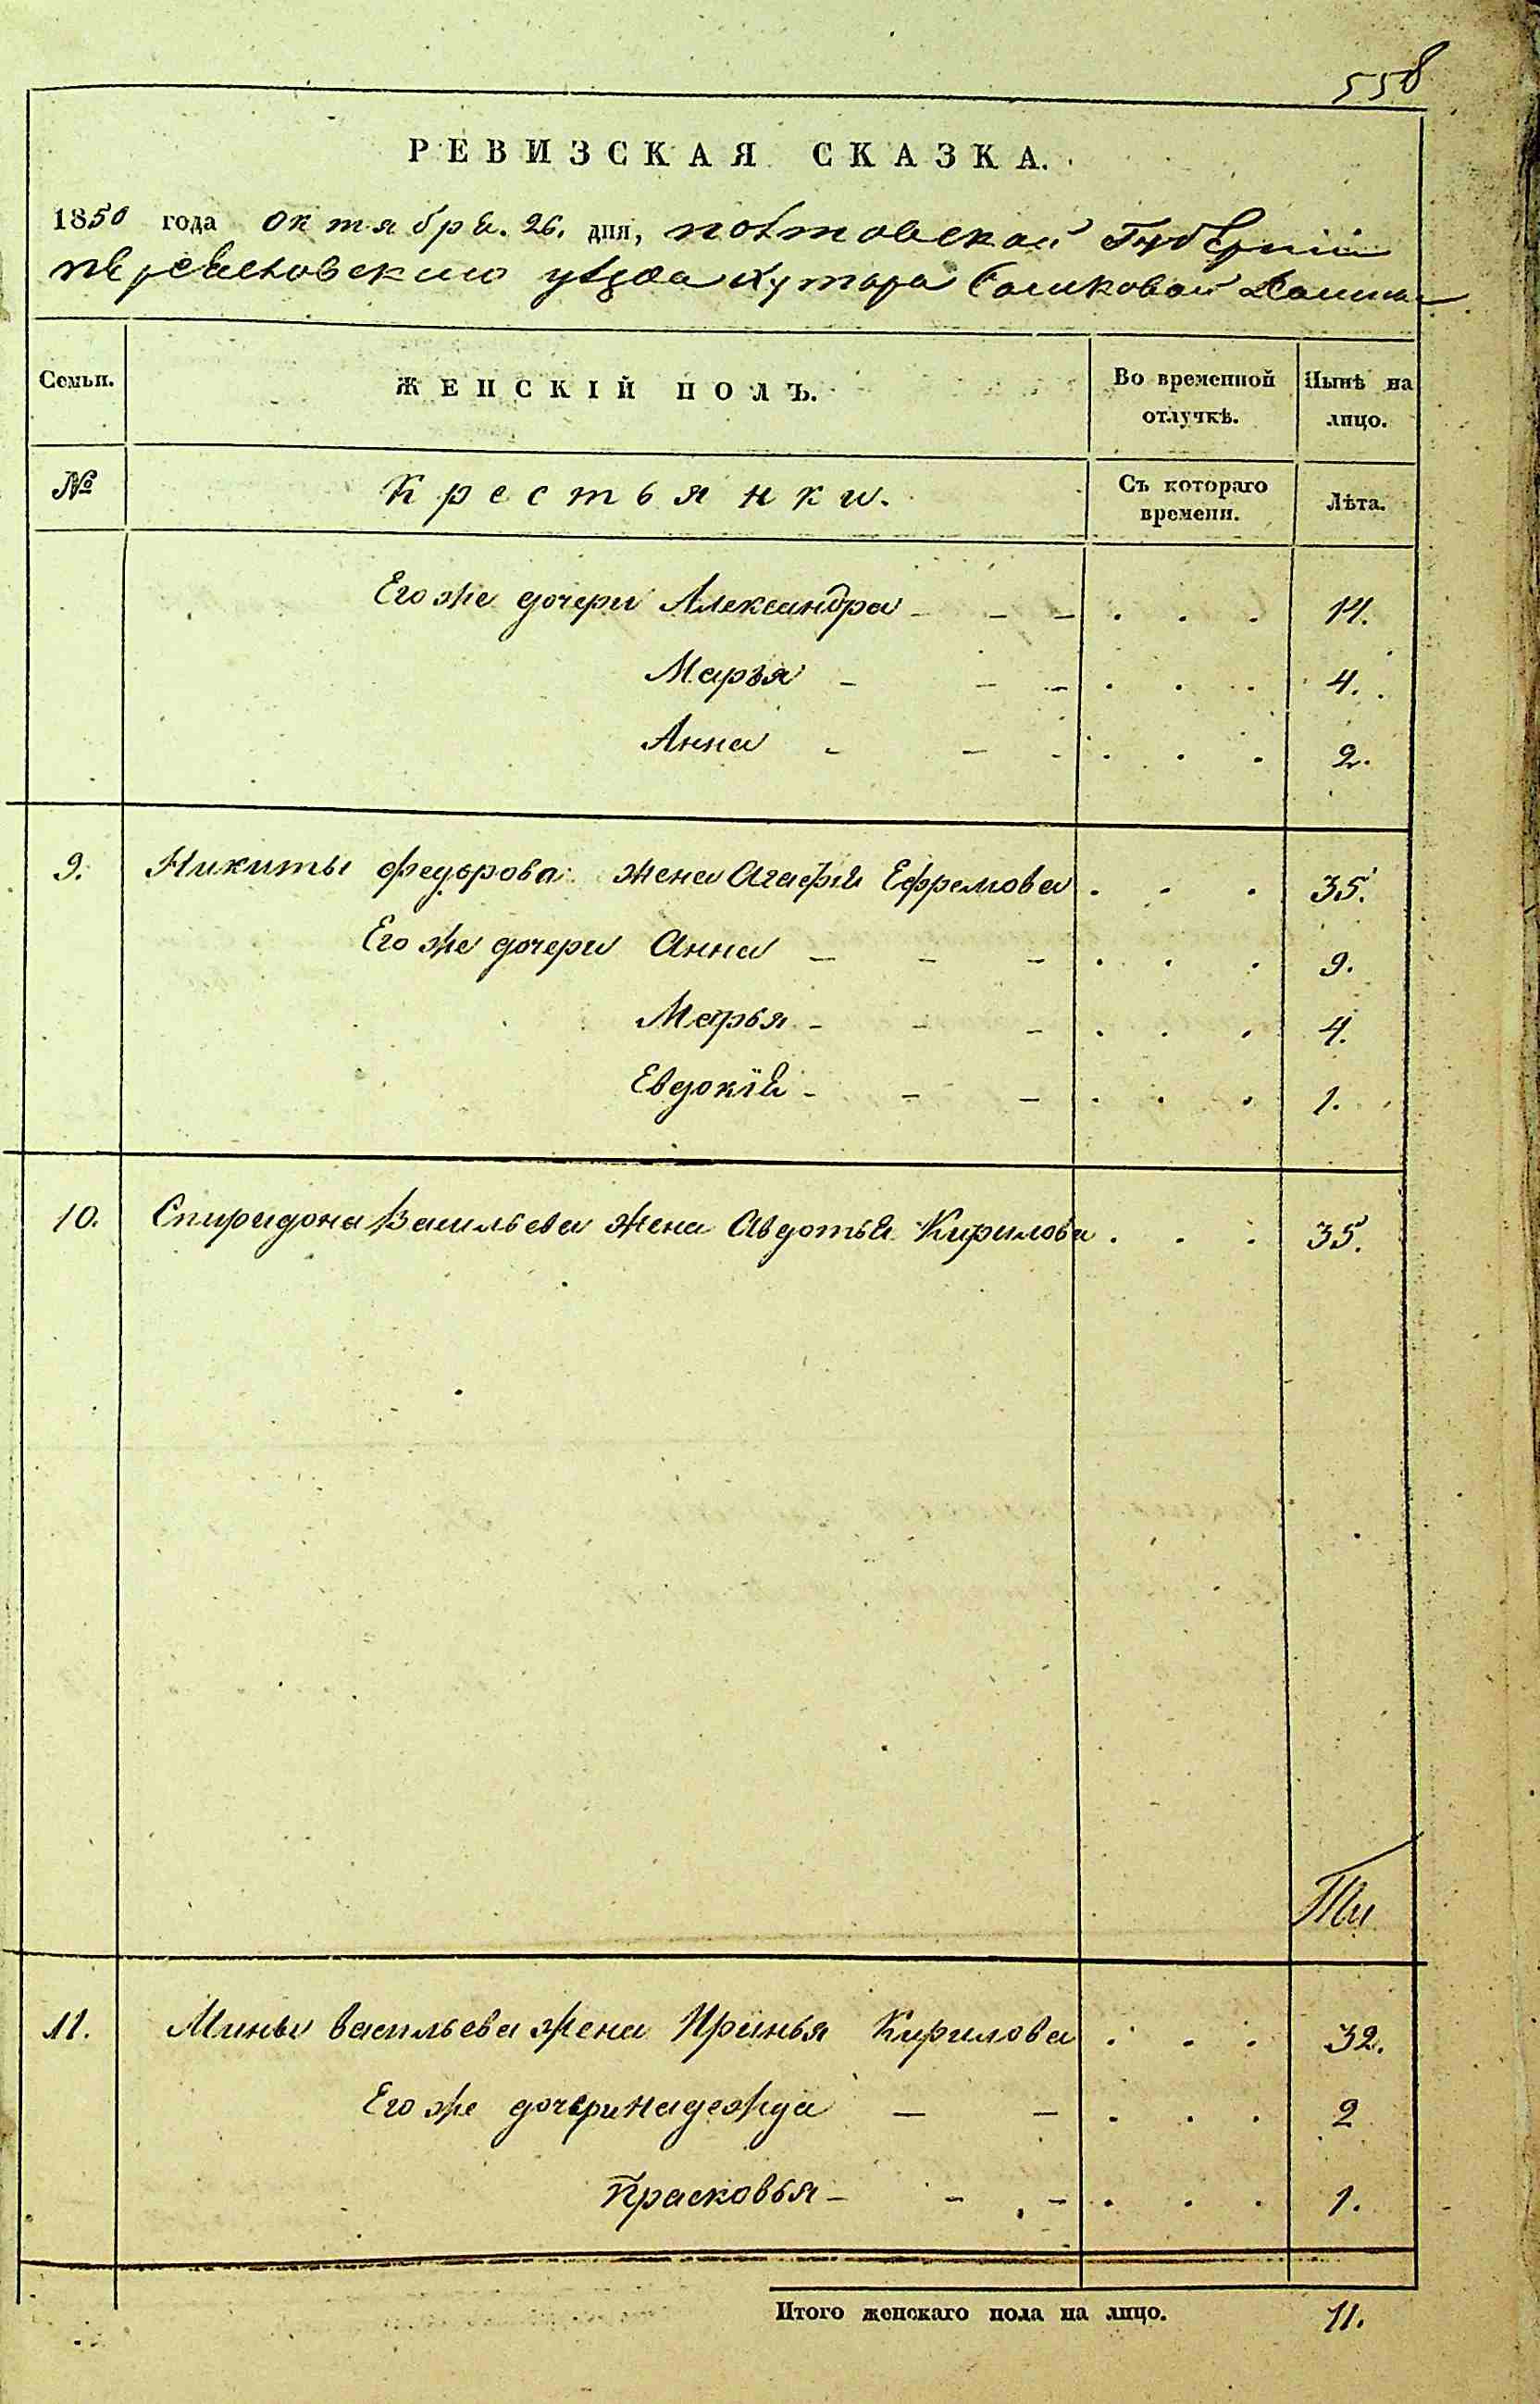 558
РЕВИЗСКАЯ СКАЗКА.
1850 года октября. 26. дня, полтовской Губернии
уѣзда хутора Соликовой Долины
Семьи. ЖЕНСКІЙ ПОЛЪ. Во временной отлучкѣ. Нынѣ на лицо.
№ Крестьянки. Съ котораго времени. Лѣта.
Его же дочери Александра - - - . . . 14.
Марья - - - . . . 4.
Анна - - - . . . 2.
9. Никиты Федорова жена Агафія Ефремова . . . 35.
Его же дочери Анна - - - . . . 9.
Марья - - - . . . 4.
Евдокія - - - . . . 1.
10. Спиридона Васильева жена Авдотья Кирилова . . . 35.
11. Мины Васильева жена Иринья Кирилова . . . 32.
Его же дочери Надежда - - . . . 2
Прасковья - - - . . . 1.
Итого женскаго пола на лицо. 11.